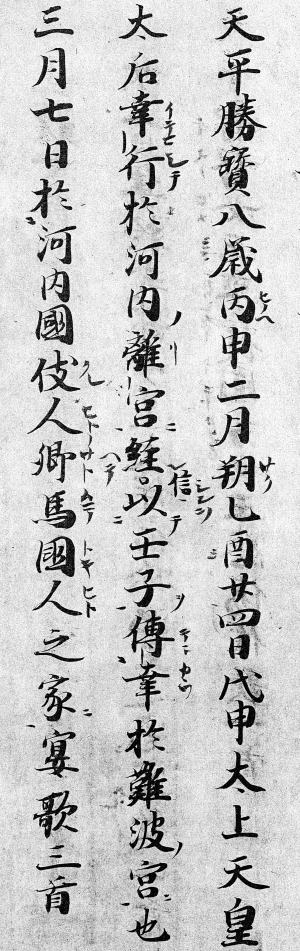 天平勝寶八歳丙申二月朔乙酉廿四日戊申太上天皇
太后幸行於河内離宮経信以壬子傳幸於難波宮也
三月七日於河内國伎人郷馬國人之家宴歌三首